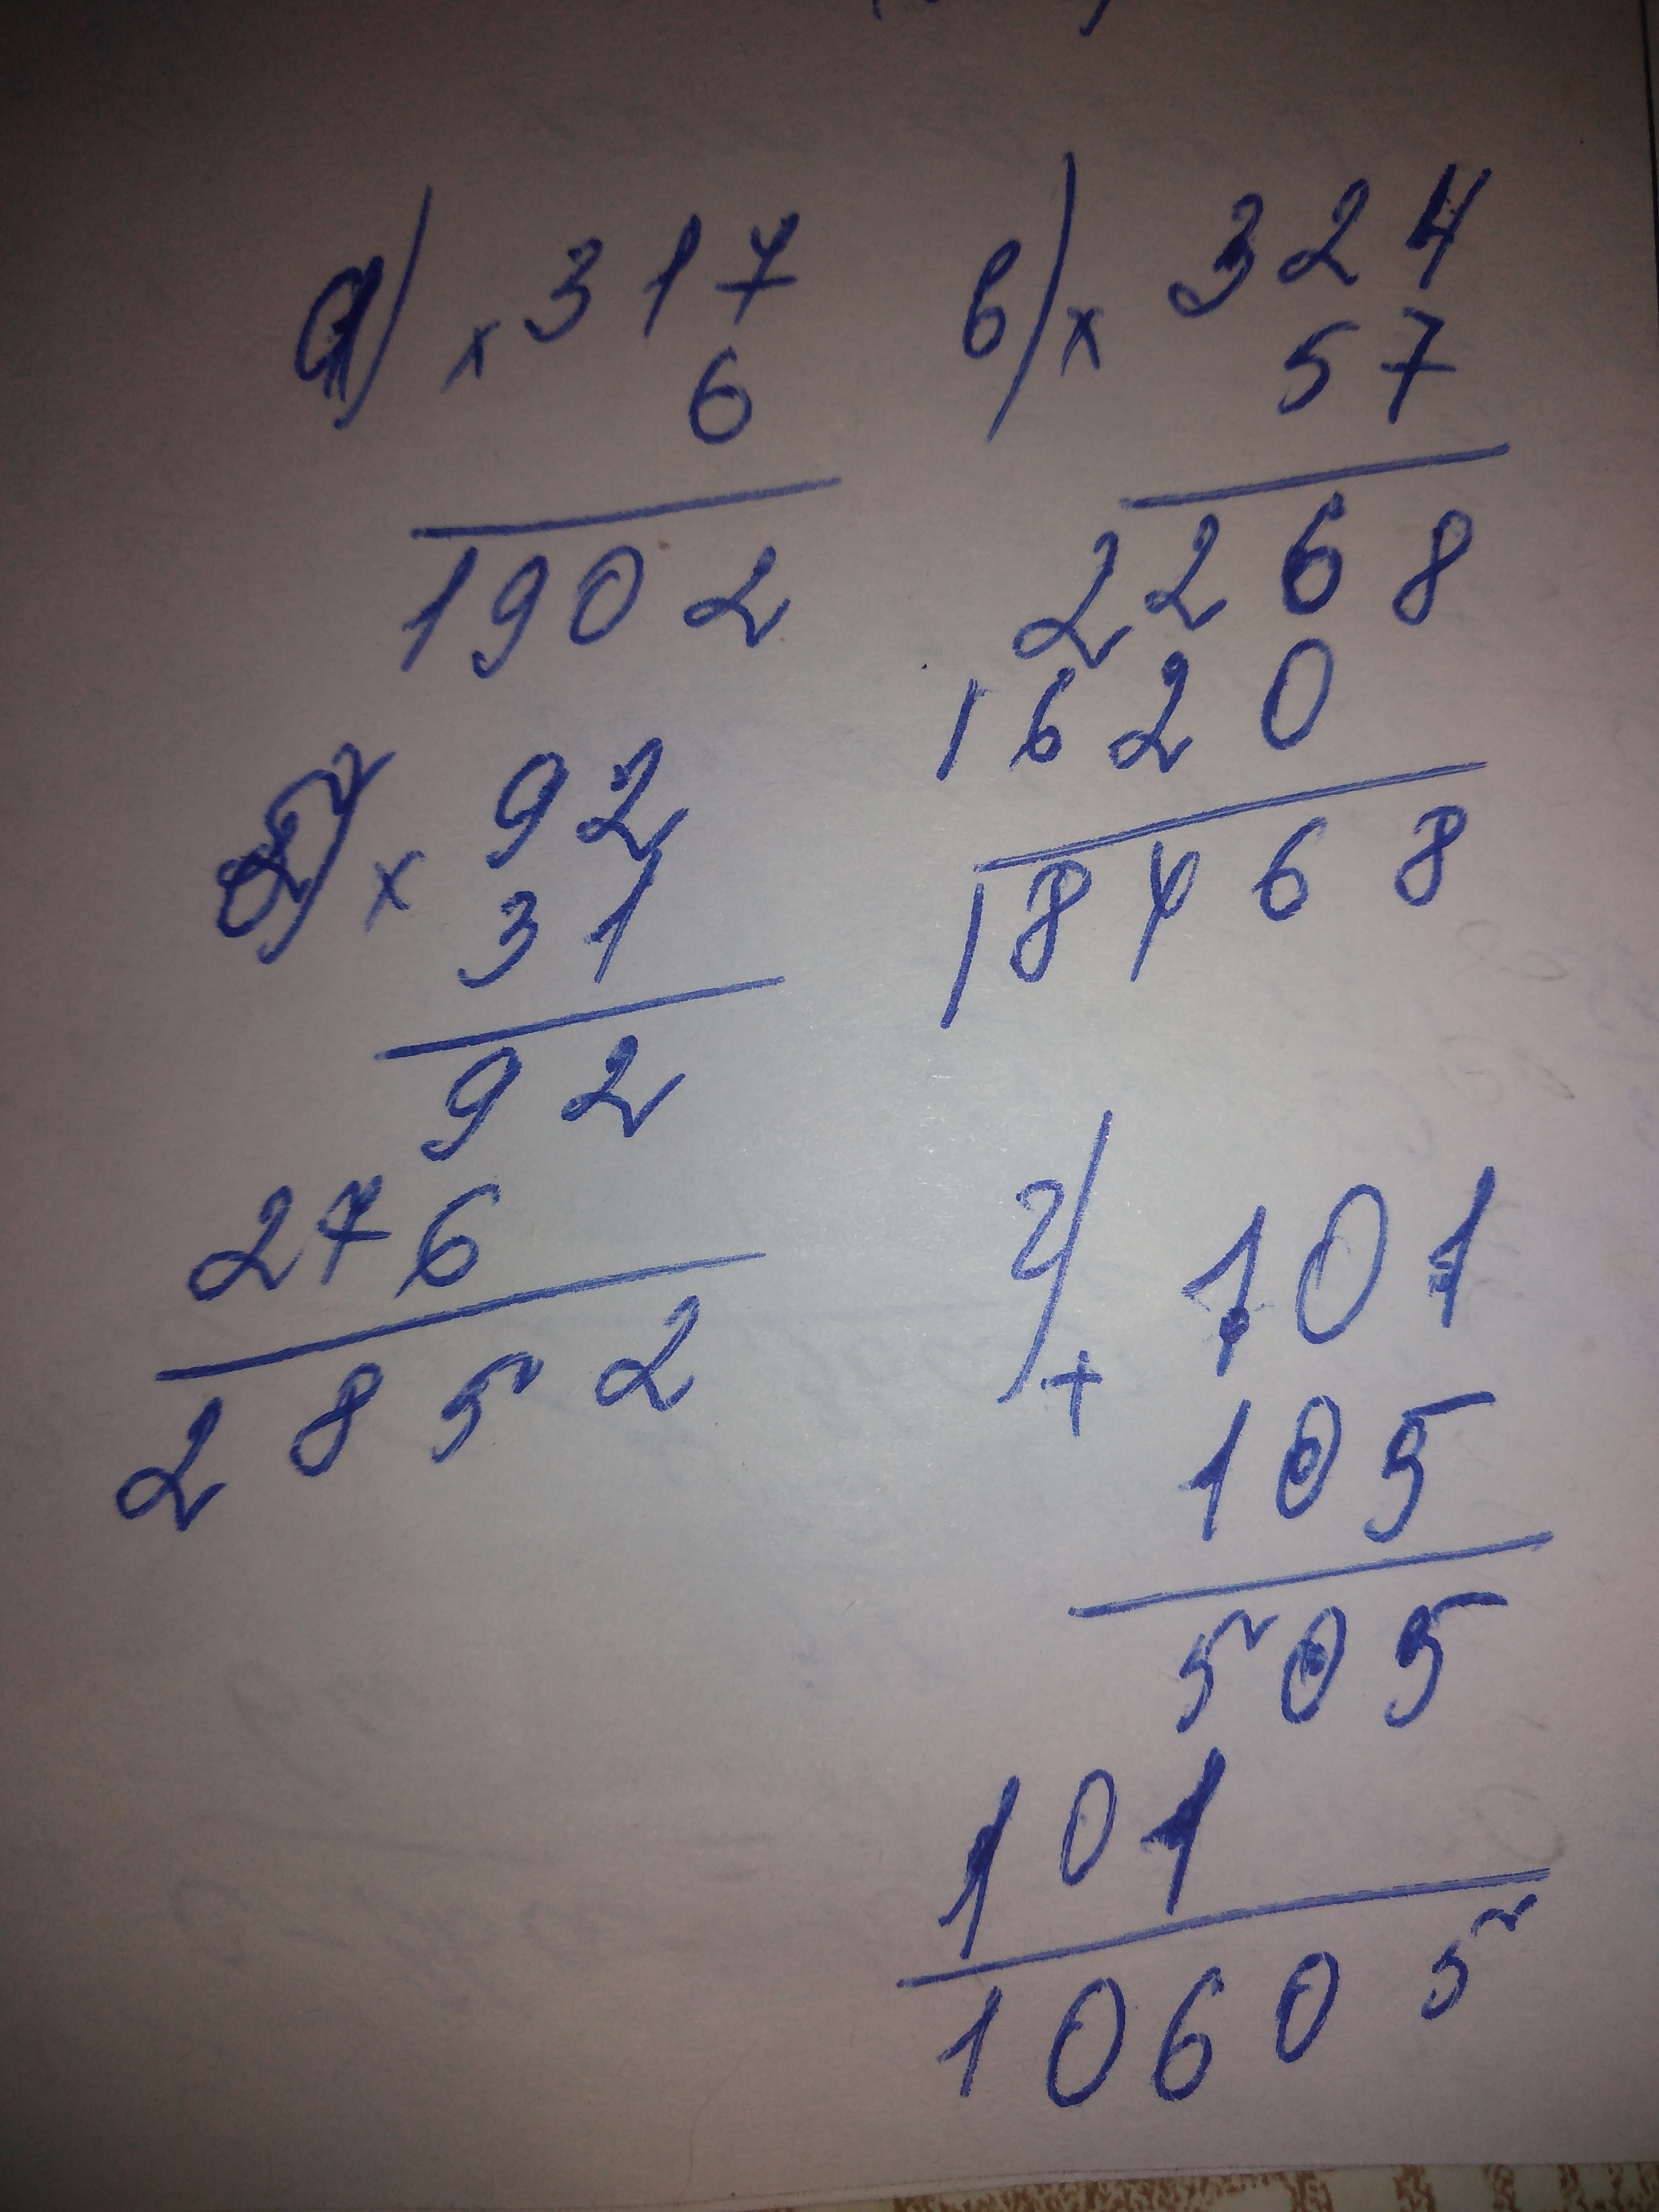 а) × 317
6
1902
б) × 92
31
92
276
2852
в) × 324
57
2268
1620
18468
г) + 101
105
505
101
10605